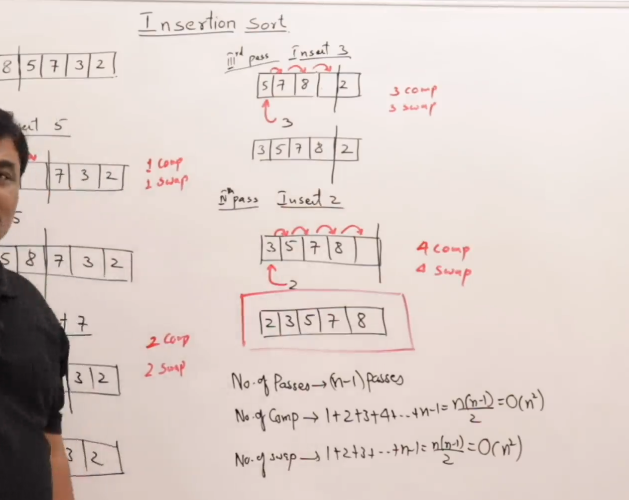 Insertion Sort
8 5 7 3 2
5
1 Comp
1 Swap
7 3 2
5
5 8 7 3 2
7
2 Comp
2 Swap
3 2
3 2
IIIrd pass Insert 3
5 7 8 2
3
3 comp
3 swap
3 5 7 8 2
pass Insert 2
3 5 7 8
2
4 comp
4 swap
2 3 5 7 8
No. of Passes → (n-1) passes
No. of Comp → 1+2+3+4+...+n-1 = n(n-1)/2 = O(n²)
No. of swap → 1+2+3+...+n-1 = n(n-1)/2 = O(n²)